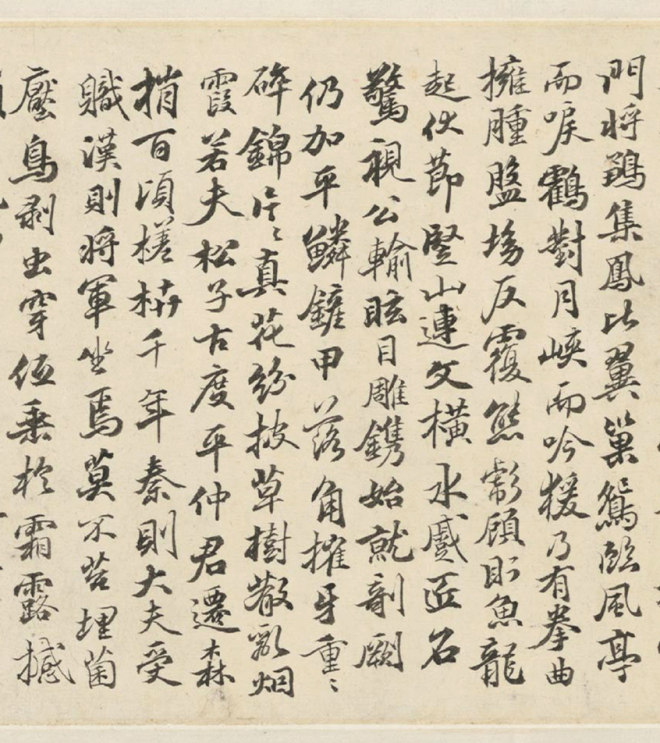 門将鶵集鳳比翼巢鴛臨風亭
而唳鶴對月峽而吟猨乃有拳曲
擁腫盤坳反覆熊彪顧盼魚龍
起伏節竪山連文橫水蹙匠石
驚視公輸眩目雕鐫始就剞劂
仍加平鱗鏟甲落角摧牙重〻
碎錦片〻真花紛披草樹散亂烟
霞若夫松子古度平仲君遷森
梢百頃槎枿千年秦則大夫受
職漢則将軍坐焉莫不苔埋菌
壓鳥剥虫穿低垂於霜露撼